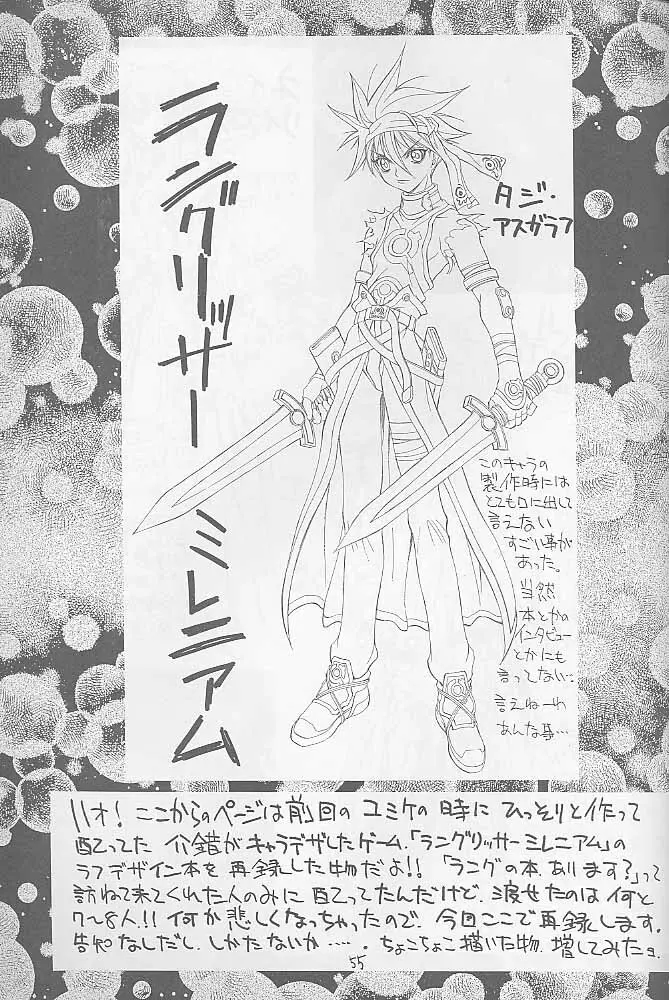 ラングリッサー ミレニアム
タジ・
アスガラフ
このキャラの
製作時には
とても口に出して
言えない
すごい事が
あった。
当然
本とかの
インタビュー
とかにも
言ってない…
言えねーわ
あんな事…
ハオ! ここからのページは前回のコミケの時に ひっそりと作って
配ってた 介錯がキャラデザしたゲーム、「ラングリッサーミレニアム」の
ラフデザイン本を 再録した物だよ!! 「ラングの本、あります?」って
訪ねて来てくれた人のみに 配ってたんだけど、渡せたのは 何と
7〜8人!! 何か悲しくなっちゃったので、今回ここで再録します。
告知なしだし、しかたないか…‥。ちょこちょこ描いた物、増してみたョ
55